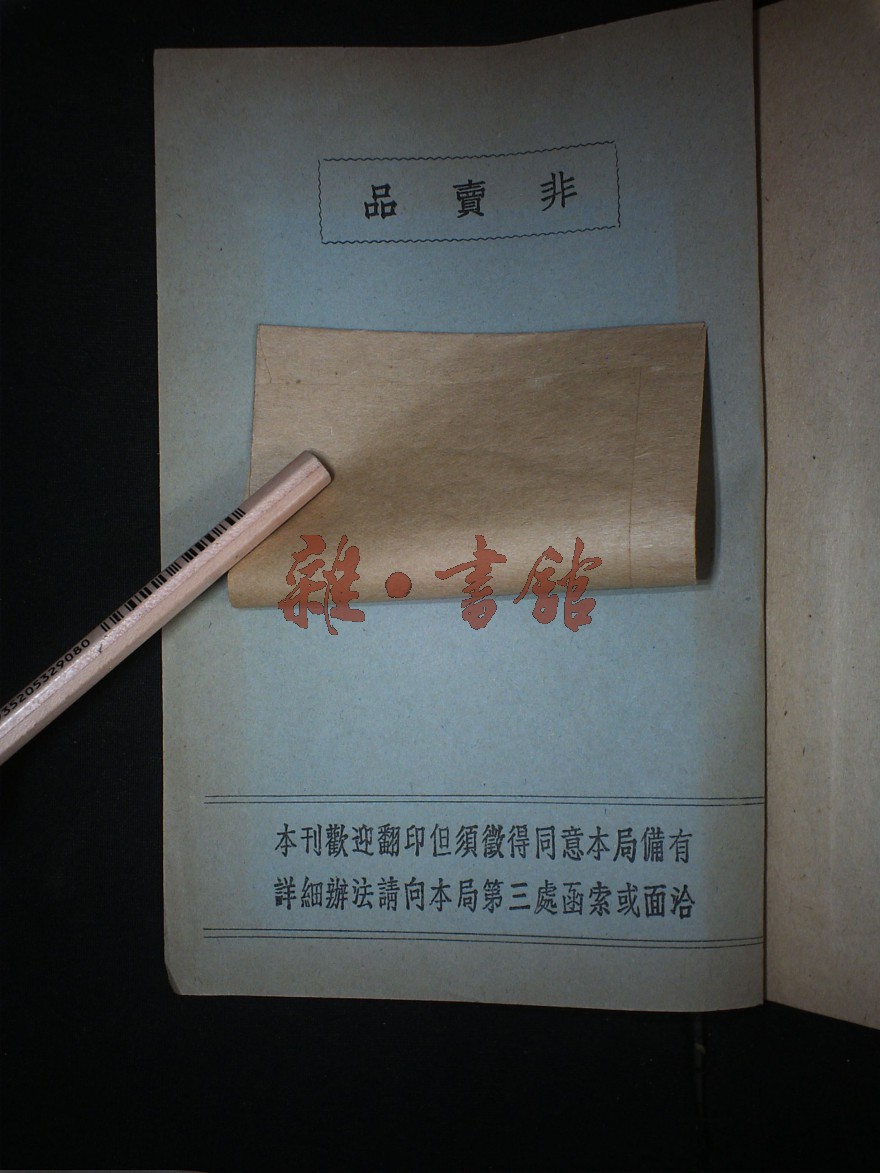 非賣品
雜·書館
35205329080
本刊歡迎翻印但須徵得同意本局備有
詳細辦法請向本局第三處函索或面洽